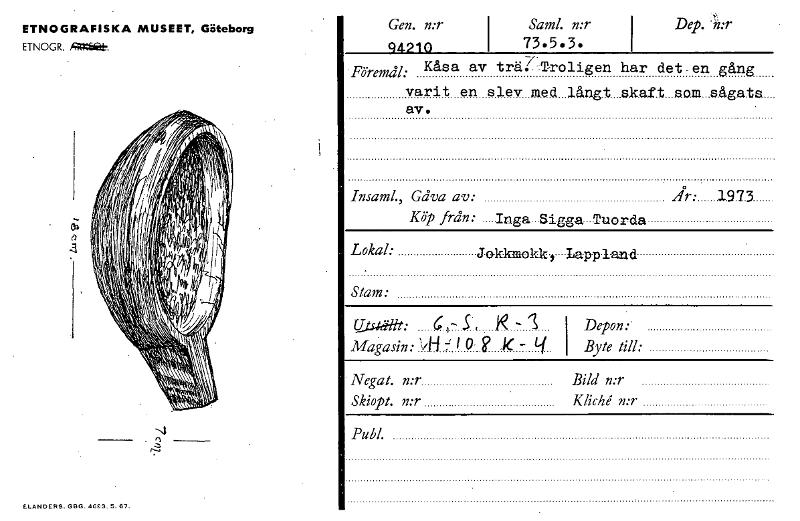 ETNOGRAFISKA MUSEET, Göteborg
ETNOGR.
18 cm.
7 cm.
ELANDERS, GBG. 4663. 5. 67.
Gen. n:r Saml. n:r Dep. n:r
94210 73.5.3.
Föremål: Kåsa av trä. Troligen har det en gång
varit en slev med långt skaft som sågats
av.
Insaml., Gåva av: År: 1973
Köp från: Inga Sigga Tuorda
Lokal: Jokkmokk, Lappland
Stam:
Utställt: G.-S. R-3 Depon:
Magasin: H-108 K-4 Byte till:
Negat. n:r Bild n:r
Skiopt. n:r Kliché n:r
Publ.